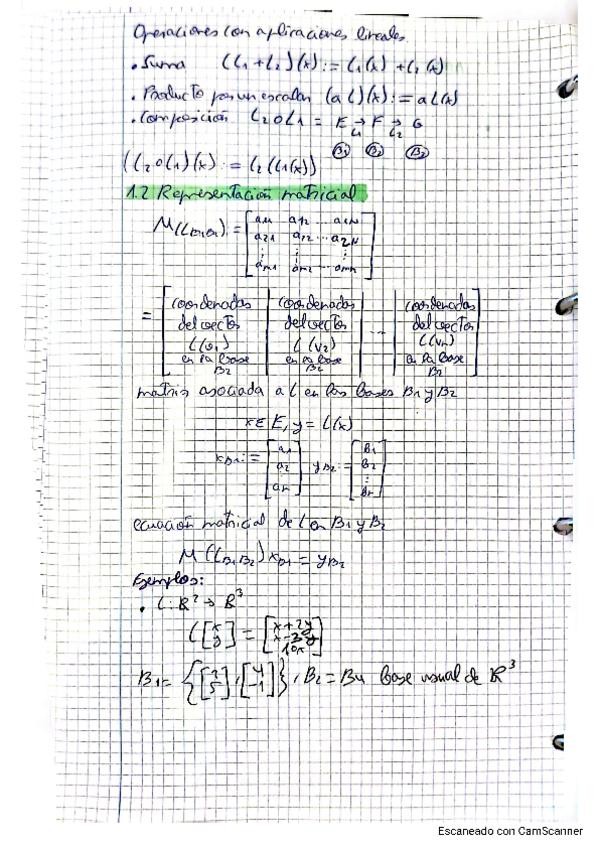 Operaciones con aplicaciones lineales.
• Suma (L1+L2)(x):= L1(x) + L2(x)
• Producto por un escalar (aL)(x):= aL(x)
• Composición L2∘L1 = E → F → G
L1 L2
B1 B2 B3
(L2∘L1)(x):= L2(L1(x))
1.2 Representación matricial
M(LB1B2):= [a11 a12 ... a1N
a21 a22 ... a2N
⋮ ⋮ ⋮
am1 am2 ... amn]
= [coordenadas | coordenadas | ... | coordenadas
del vector | del vector | del vector
L(v1) | L(v2) | L(vn)
en la base | en la base | en la base
B2 | B2 | B2]
matriz asociada a L en las bases B1 y B2
x∈E, y = L(x)
xB1:= [a1 a2 an] yB2:= [B1 B2 ⋮ Bn]
ecuación matricial de L en B1 y B2
M(LB1B2)xB1 = yB2
Ejemplos:
• L: R² → R³
L[x y] = [x+2y x-3y 10x]
B1 = {[2 5], [4 -1]}, B2 = Bu base usual de R³
Escaneado con CamScanner